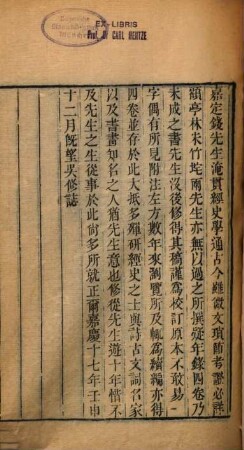 EX-LIBRIS
Prof. Dr CARL HENTZE
嘉定錢先生淹貫經史學通古今雖微文瑣節考證必詳
顧亭林朱竹垞兩先生亦無以過之所撰疑年錄四卷乃
未成之書先生沒後修得其稿謹爲校訂原本不敢易一
字偶有所見附注左方數年來瀏覽所及輒爲續編亦得
四卷並存於此大抵多殫研經史之士與詩古文詞名家
以及書畫知名之人猶先生意也修從先生遊十年惜不
及先生之生從事於此尚多所就正爾嘉慶十七年壬申
十二月旣望吳修誌